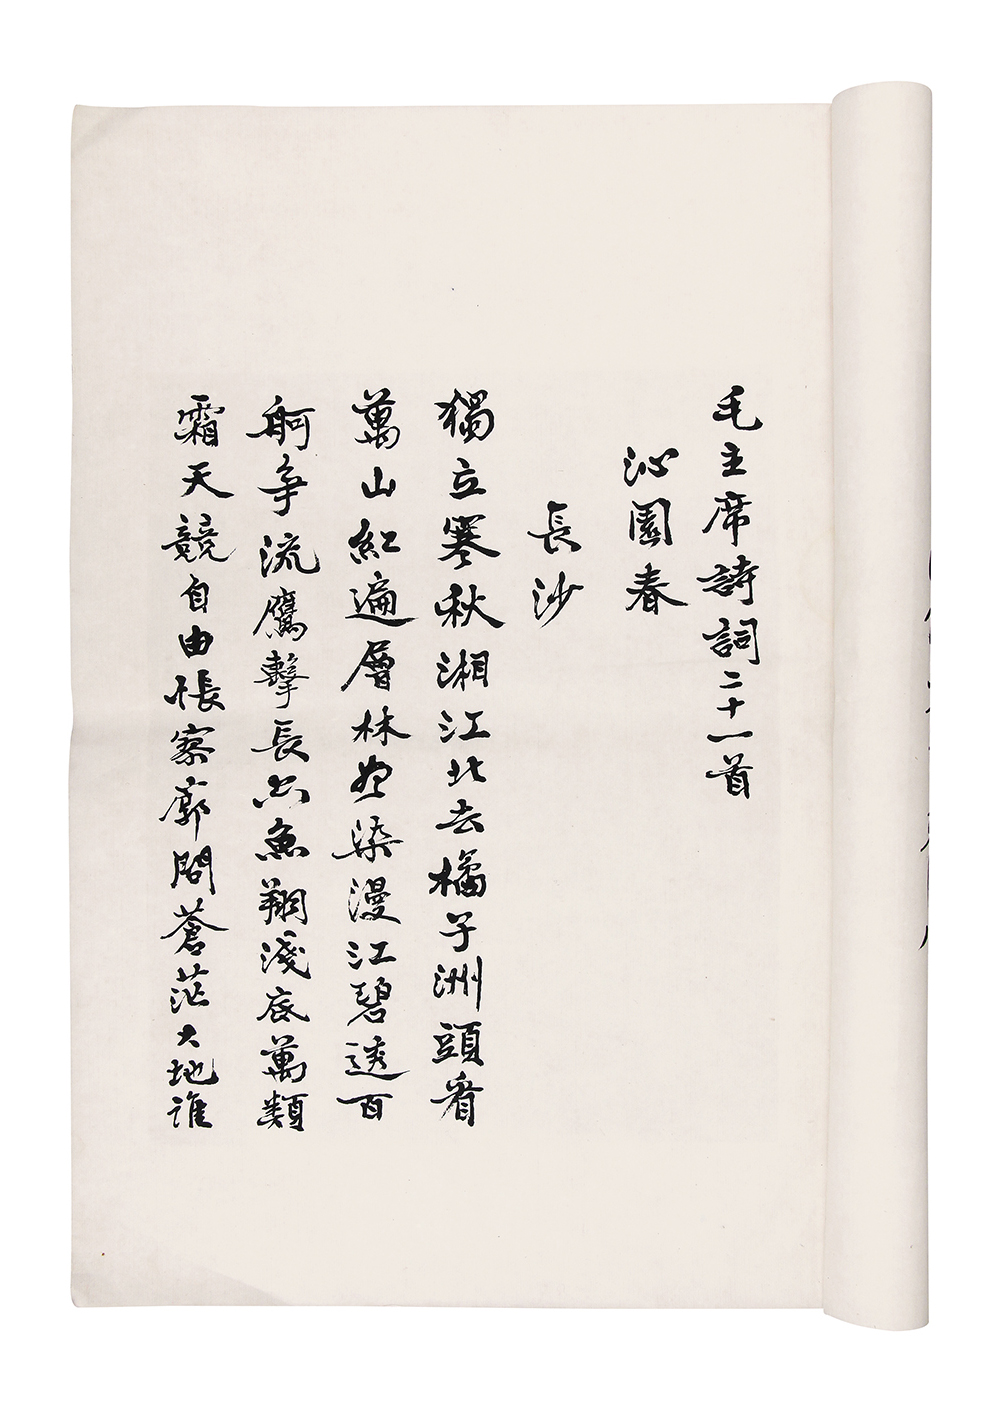 毛主席詩詞二十一首
沁園春
長沙
獨立寒秋湘江北去橘子洲頭看
萬山紅遍層林盡染漫江碧透百
舸爭流鷹擊長空魚翔淺底萬類
霜天競自由悵寥廓問蒼茫大地誰